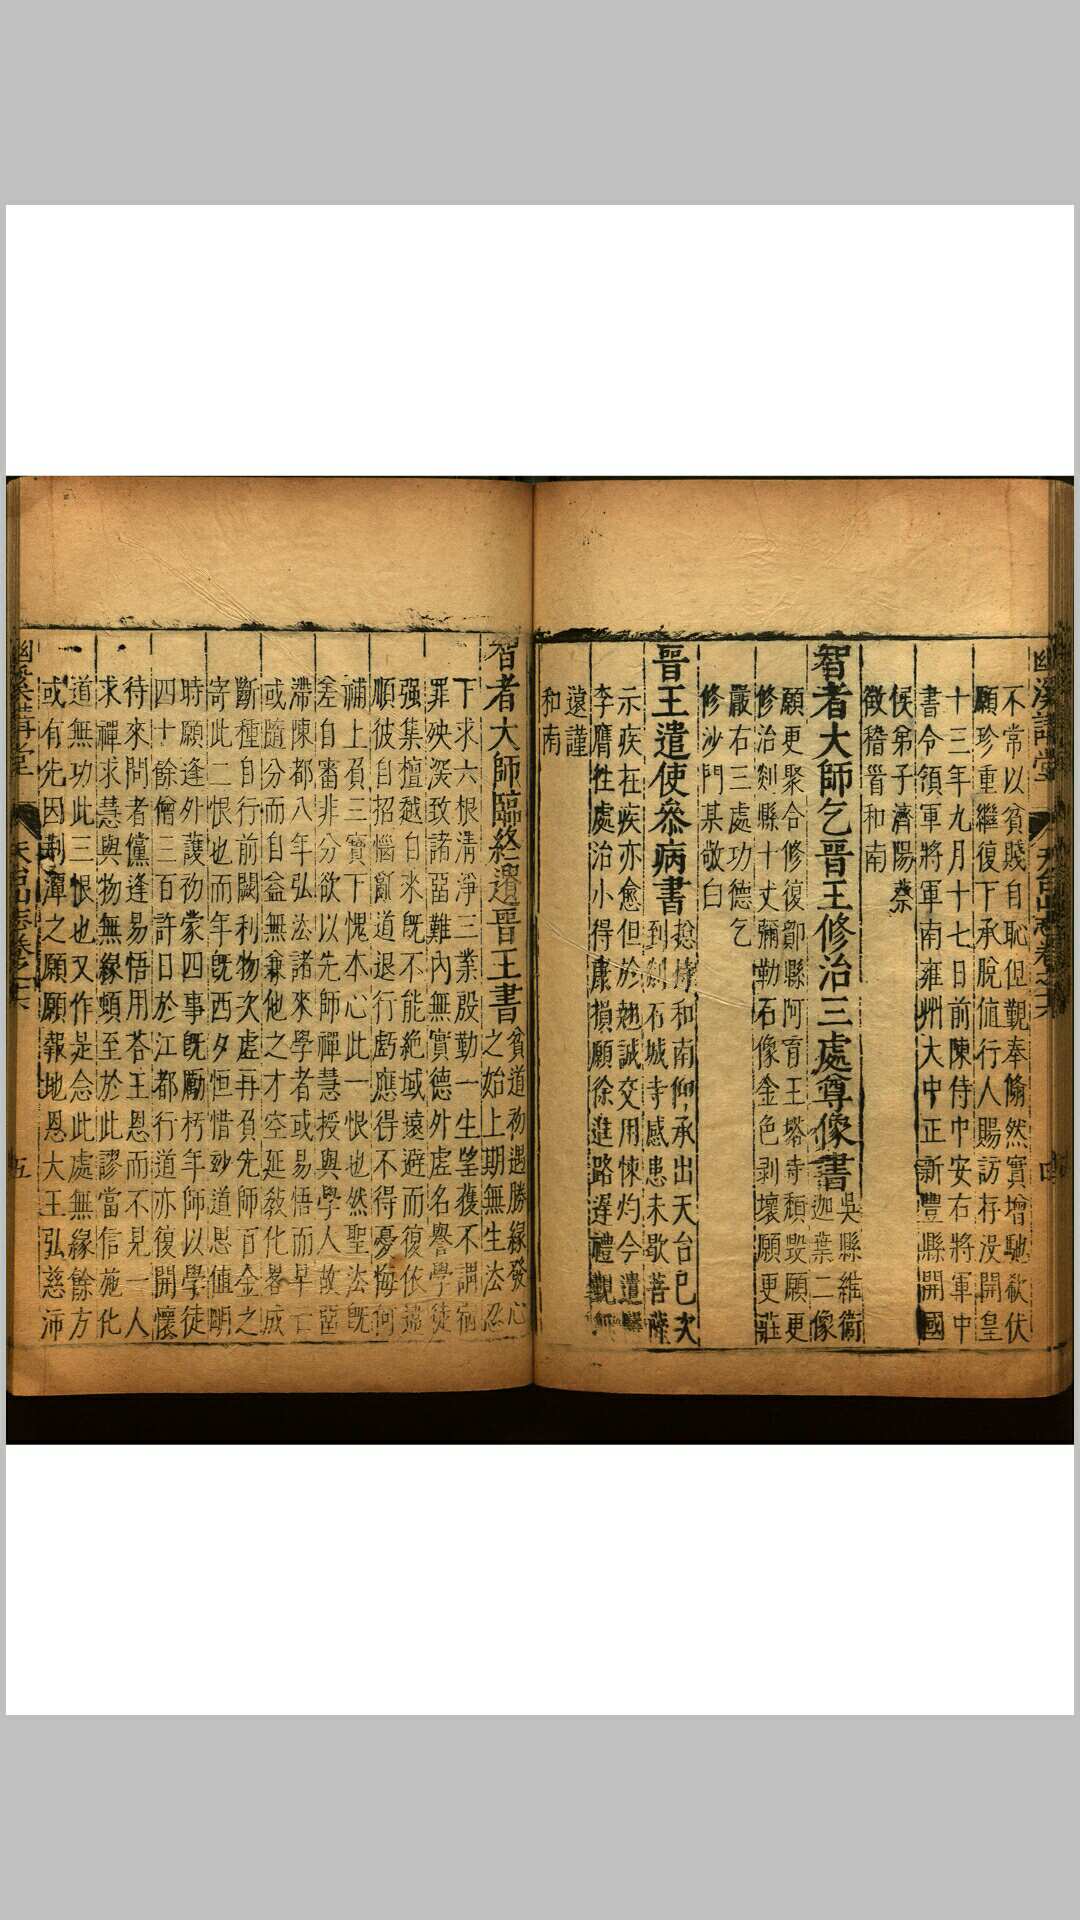 幽溪講堂 天台山志卷之六 四
不常以貧賤自恥但覿奉翛然實增馳欷伏
願珍重繼復下承脫值行人賜訪存沒開皇
十三年九月十七日前陳侍中安右將軍中
書令領軍將軍南雍州大中正新豐縣開國
侯弟子濟陽蔡
徵稽晉和南
智者大師乞晉王修治三處尊像書
吳縣維衛
迦葉二像
願更聚合修復鄮縣阿育王塔寺頹毀願更
修治剡縣十丈彌勒石像金色剥壞願更莊
嚴右三處功德乞
修沙門某敬白
晉王遣使參病書
捴持和南仰承出天台已次
到剡石城寺感患未歇菩薩
示疾在疾亦愈但於翹誠交用悚灼今遣
李膺往處治小得康損願徐進路遲禮覲
遠謹
和南
智者大師臨終遺晉王書
貧道初遇勝緣發心
之始上期無生法忍
下求六根清淨三業殷勤一生望獲不謂宿
罪殃深致諸惡難內無實德外虛名譽學徒
强集檀越自來旣不能絶域遠避而復依違
順彼自招惱亂道退行虧應得不得憂悔何
補上負三寶下愧本心此一恨也然聖法旣
差自審非分欲以先師禪慧授與學人故留
滯陳都八年弘法諸來學者或易悟而早亡
或隨分而自益無兼他之才空延教化畧成
斷種自行前闕利物次虛再負先師百金之
寄此二恨也而年旣西夕恒惜妙道思值明
時願逢外護初蒙四事旣勵朽年師以學徒
四十餘僧三百許日於江都行道亦復開懷
待來問者儻逢易悟用荅王恩而不見一人
求禪求慧與物無緣頓至於此謬當信施化
道無功此三恨也又作是念此處無緣餘方
或有先因荆潭之願願報地恩大王弘慈沛
幽溪講堂 天台山志卷之六 五